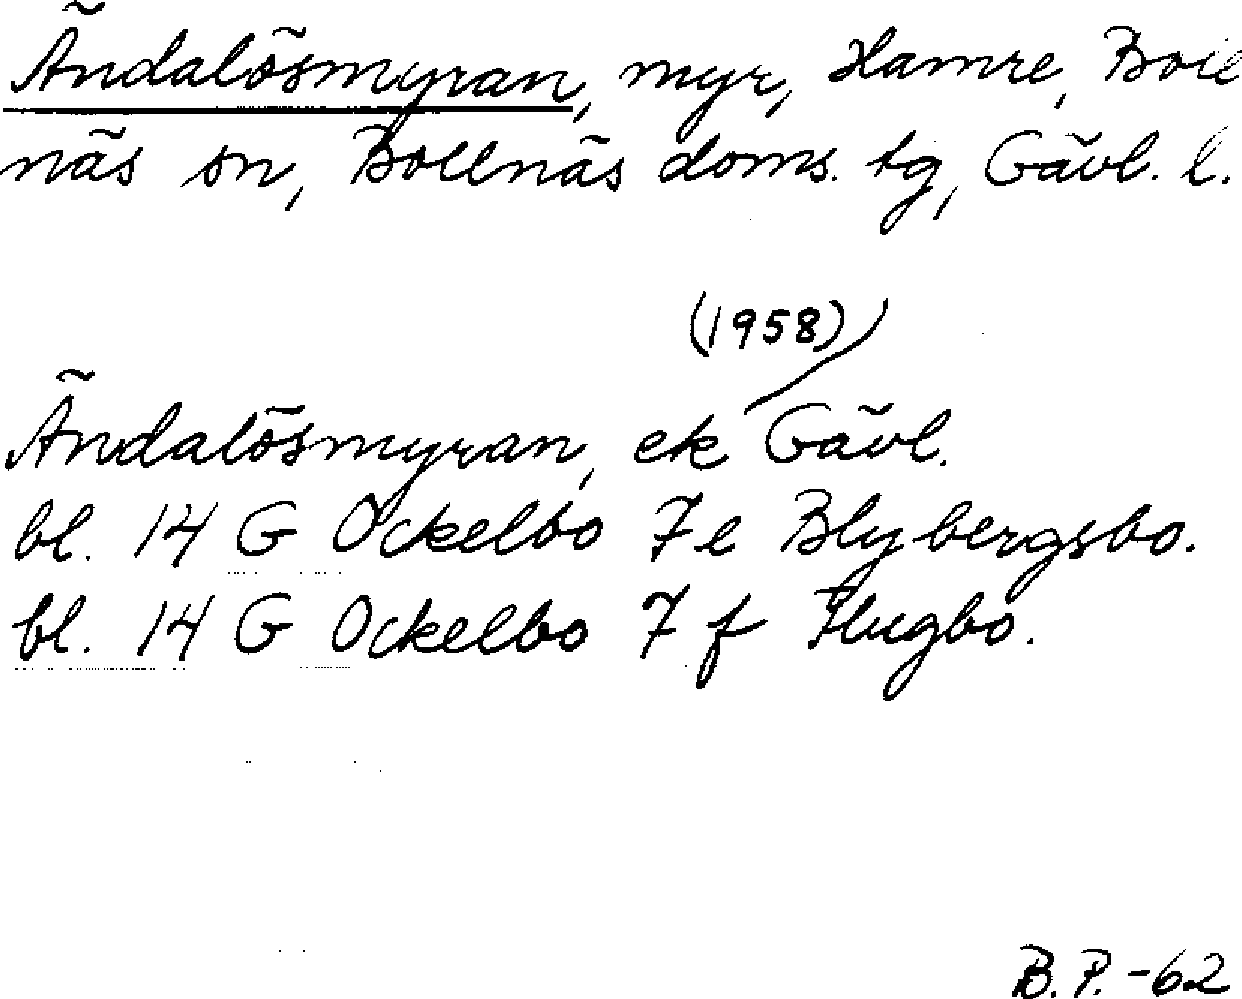 Ändalösmyran, myr, Hamre, Boll
näs sn, Bollnäs doms. tg, Gävl. l.
(1958)
Ändalösmyran, ek Gävl.
bl. 14 G Ockelbo 7 e Blybergsbo.
bl. 14 G Ockelbo 7 f Flugbo.
B. P. -62